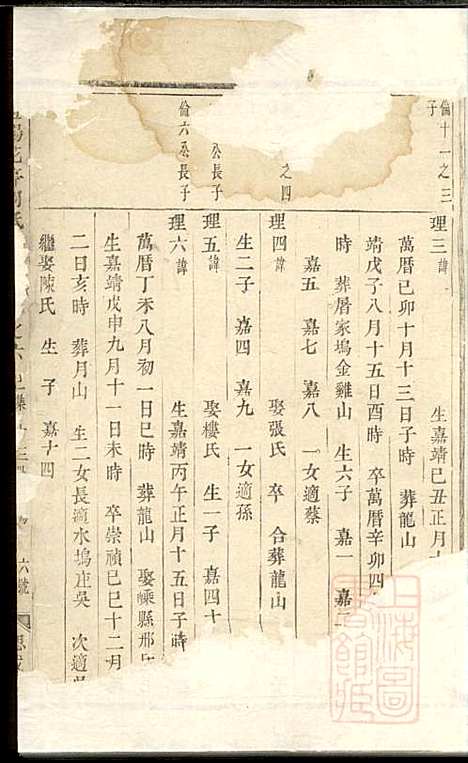 倫十一之三
子
理三 諱 生嘉靖己丑正月十
萬厯己卯十月十三日子時 葬龍山
靖戊子八月十五日酉時 卒萬厯辛卯四
時 葬厝家塢金雞山 生六子 嘉一 嘉二
嘉五 嘉七 嘉八 一女適蔡
之四
理四 諱 娶張氏 卒 合葬龍山
生二子 嘉四 嘉九 一女適孫
公長子
理五 諱 娶樓氏 生一子 嘉四十
倫六公長子
理六 諱 生嘉靖丙午正月十五日子時
萬厯丁未八月初一日巳時 葬龍山 娶嵊縣邢氏
生嘉靖戊申九月十一日未時 卒崇禎己巳十二月
二日亥時 葬月山 生二女長適水塢庄吳 次適
繼娶陳氏 生子 嘉十四
六號
上海圖書館藏